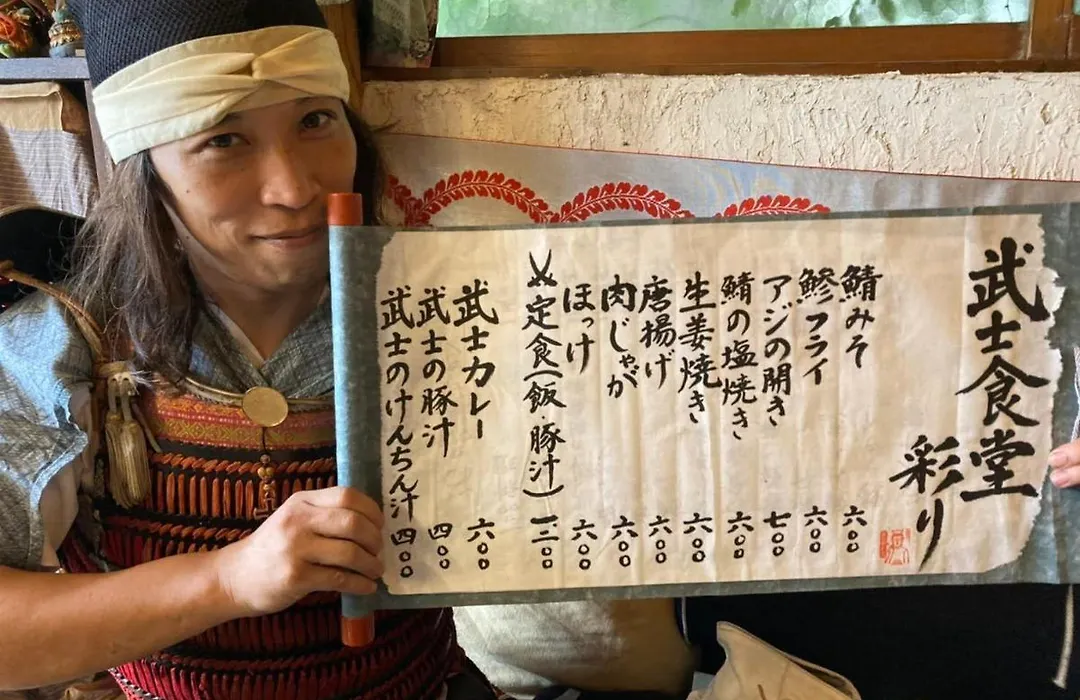 武士食堂
彩り
鯖みそ 六〇〇
鯵フライ 六〇〇
アジの開き 七〇〇
鯖の塩焼き 六〇〇
生姜焼き 六〇〇
唐揚げ 六〇〇
肉じゃが 六〇〇
ほっけ 六〇〇
定食(飯・豚汁) 三〇〇
武士カレー 六〇〇
武士の豚汁 四〇〇
武士のけんちん汁 四〇〇